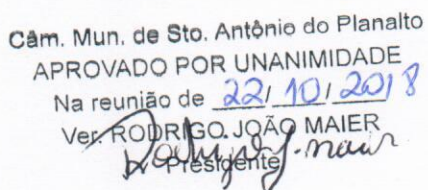 Câm. Mun. de Sto. Antônio do Planalto
APROVADO POR UNANIMIDADE
Na reunião de 22/10/2018
Ver. RODRIGO JOÃO MAIER
Presidente